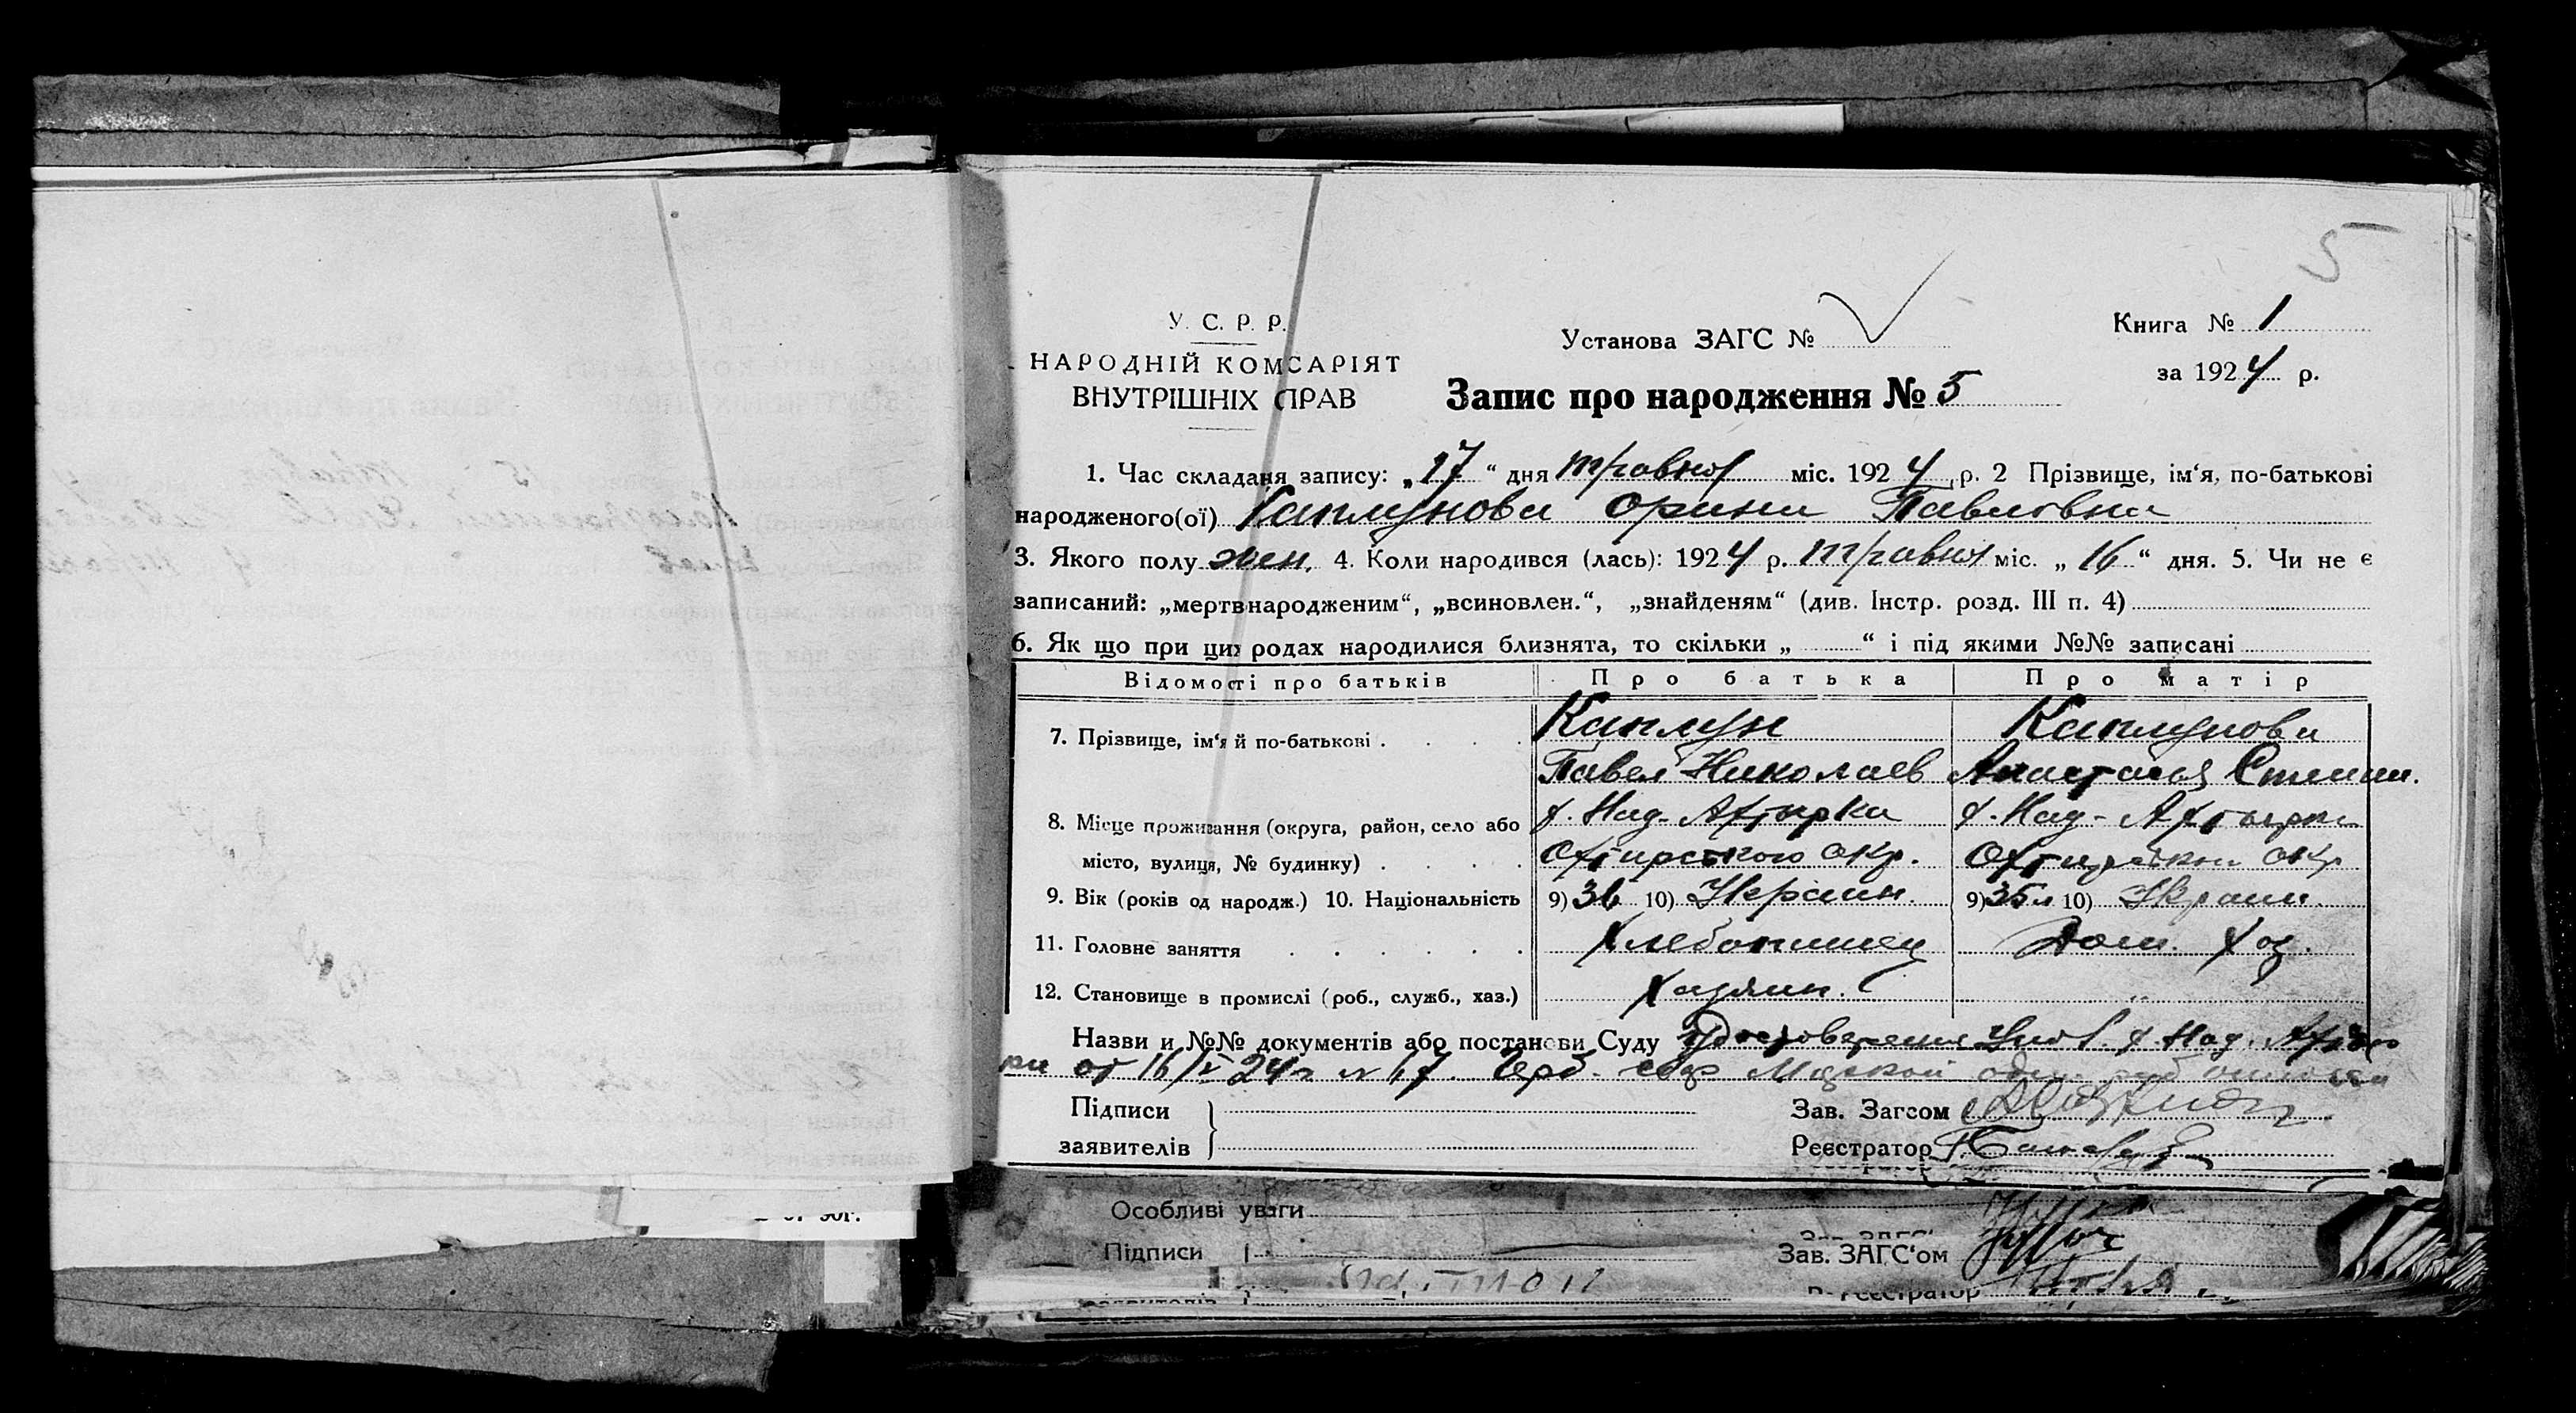 5
У. С. Р. Р.
НАРОДНІЙ КОМСАРІЯТ
ВНУТРІШНІХ ПРАВ
Установа ЗАГС №
Книга № 1
за 1924 р.
Запис про народження № 5
1. Час складаня запису: „17“ дня травня міс. 1924 р. 2 Прізвище, ім‘я, по-батькові
народженого(ої) Каплунова Орина Павловна
3. Якого полу жен. 4. Коли народився (лась): 1924 р. травня міс. „16“ дня. 5. Чи не є
записаний: „мертвнародженим“, „всиновлен.“, „знайденям“ (див. Інстр. розд. III п. 4)
6. Як що при цих родах народилися близнята, то скільки „ “ і під якими №№ записані
Відомості про батьків Про батька Про матір
7. Прізвище, ім‘я й по-батькові Каплун Каплунова
Павел Николаев Анастасия Степан.
8. Місце проживання (округа, район, село або х. Над-Ахтырка х. Над-Ахтырка
місто, вулиця, № будинку) Охтирського окр. Охтирской окр
9. Вік (років од народж.) 10. Національність 9) 36 10) Украин. 9) 35 л 10) Украин.
11. Головне заняття Хлебопашец Дом. Хоз.
12. Становище в промислі (роб., служб., хаз.) Хазяин. „
Назви и №№ документів або постанови Суду Удостоверение Упол. х. Над. Ахтыр
ки от 16/V 24 г № 17. Герб. сбор
Підписи
заявителів
Зав. Загсом
Реєстратор
Особливі уваги
Підписи
Зав. ЗАГС‘ом
заявителів
Реєстратор